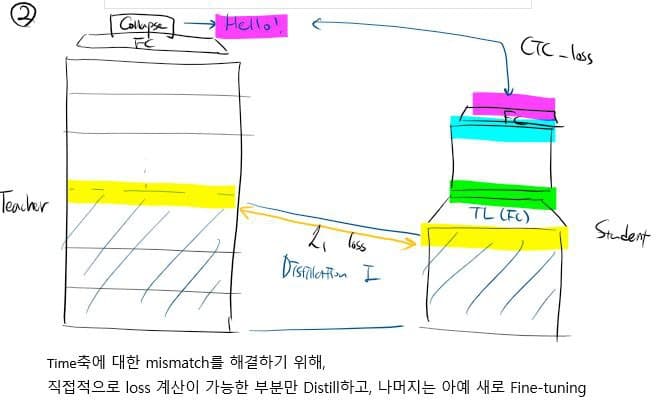 ②
Collapse
Hello!
FC
CTC_loss
FC
Teacher
TL (FC)
L1 loss
Student
Distillation I
Time축에 대한 mismatch를 해결하기 위해,
직접적으로 loss 계산이 가능한 부분만 Distill하고, 나머지는 아예 새로 Fine-tuning